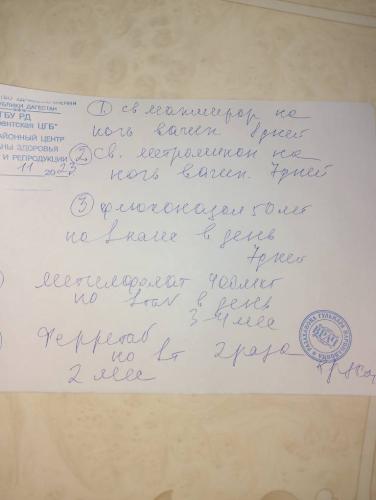 УБЛИКИ ДАГЕСТАН
ГБУ РД
ентская ЦГБ"
АЙОННЫЙ ЦЕНТР
АНЫ ЗДОРОВЬЯ
И РЕПРОДУКЦИИ
11 2023
① св макмирор на
ночь вагин 8 дней
② св. метромикон на
ночь вагин. 7 дней
③ флюконазол 50 мг
по 1 капс в день
7 дней
метилфолат 400 мкг
по 1 таб в день
3-4 мес
Ферретаб
по 1 т 2 раза
2 мес
ВРАЧ